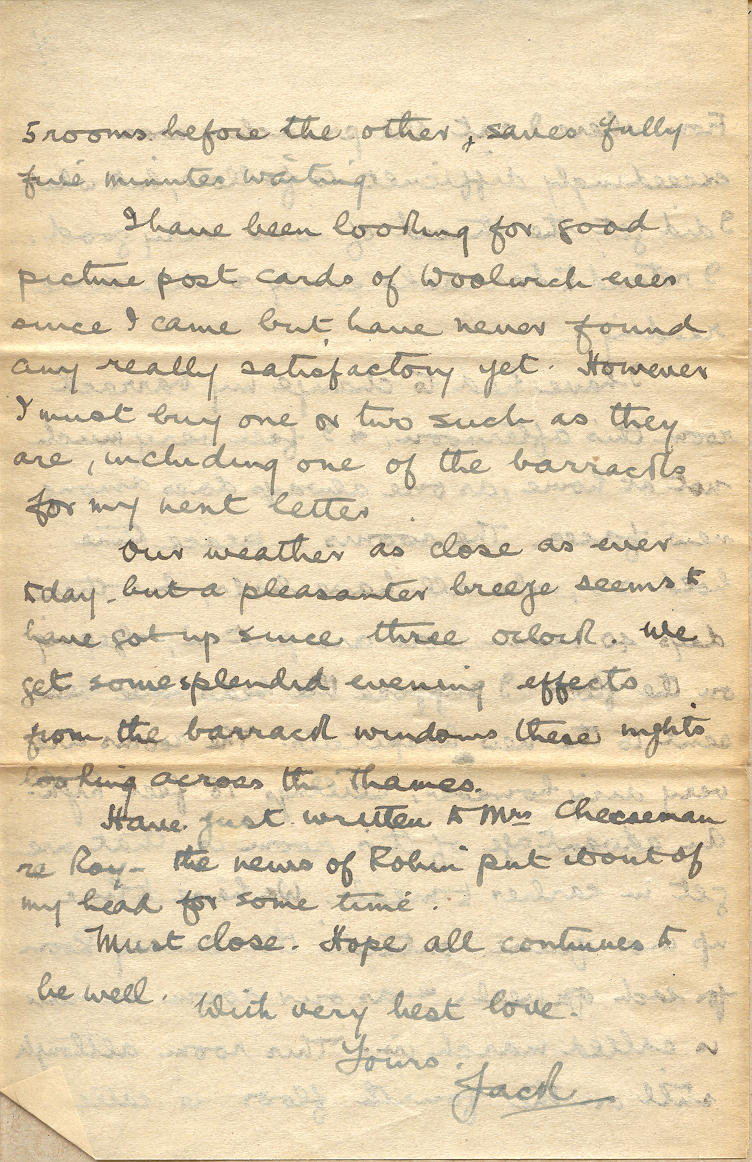 5 rooms before the other, saves fully
five minutes waiting
I have been looking for good
picture post cards of Woolwich ever
since I came but have never found
any really satisfactory yet. However
I must buy one or two such as they
are, including one of the barracks
for my next letter.
Our weather as close as ever
today - but a pleasanter breeze seems to
have got up since three oclock. We
get some splendid evening effects
from the barrack windows these nights
looking across the Thames.
Have just written to Mrs Cheeseman
re Roy - the news of Robin put it out of
my head for some time.
Must close. Hope all continues to
be well. With very best love.
Yours.
Jack